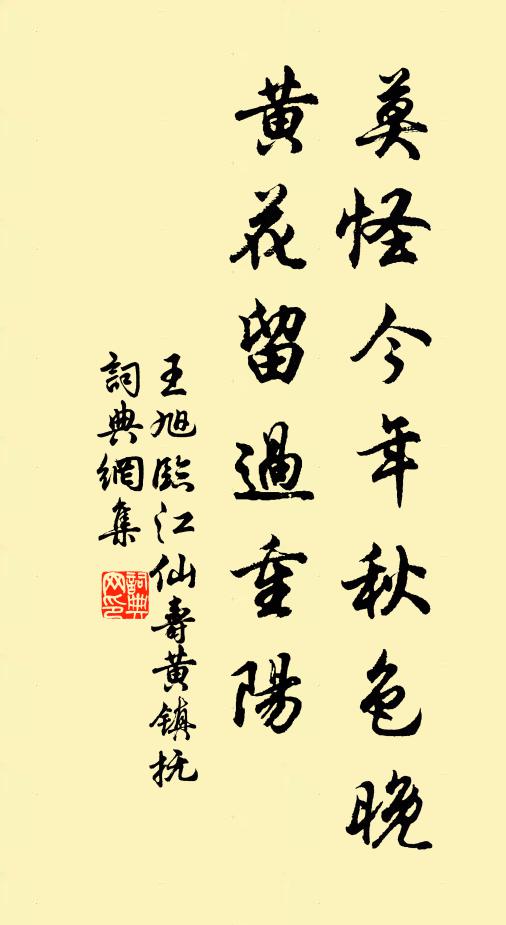 莫怪今年秋色晚
黄花留過重陽
王旭臨江仙壽黄鎮抚
詞典網集
詞典网印